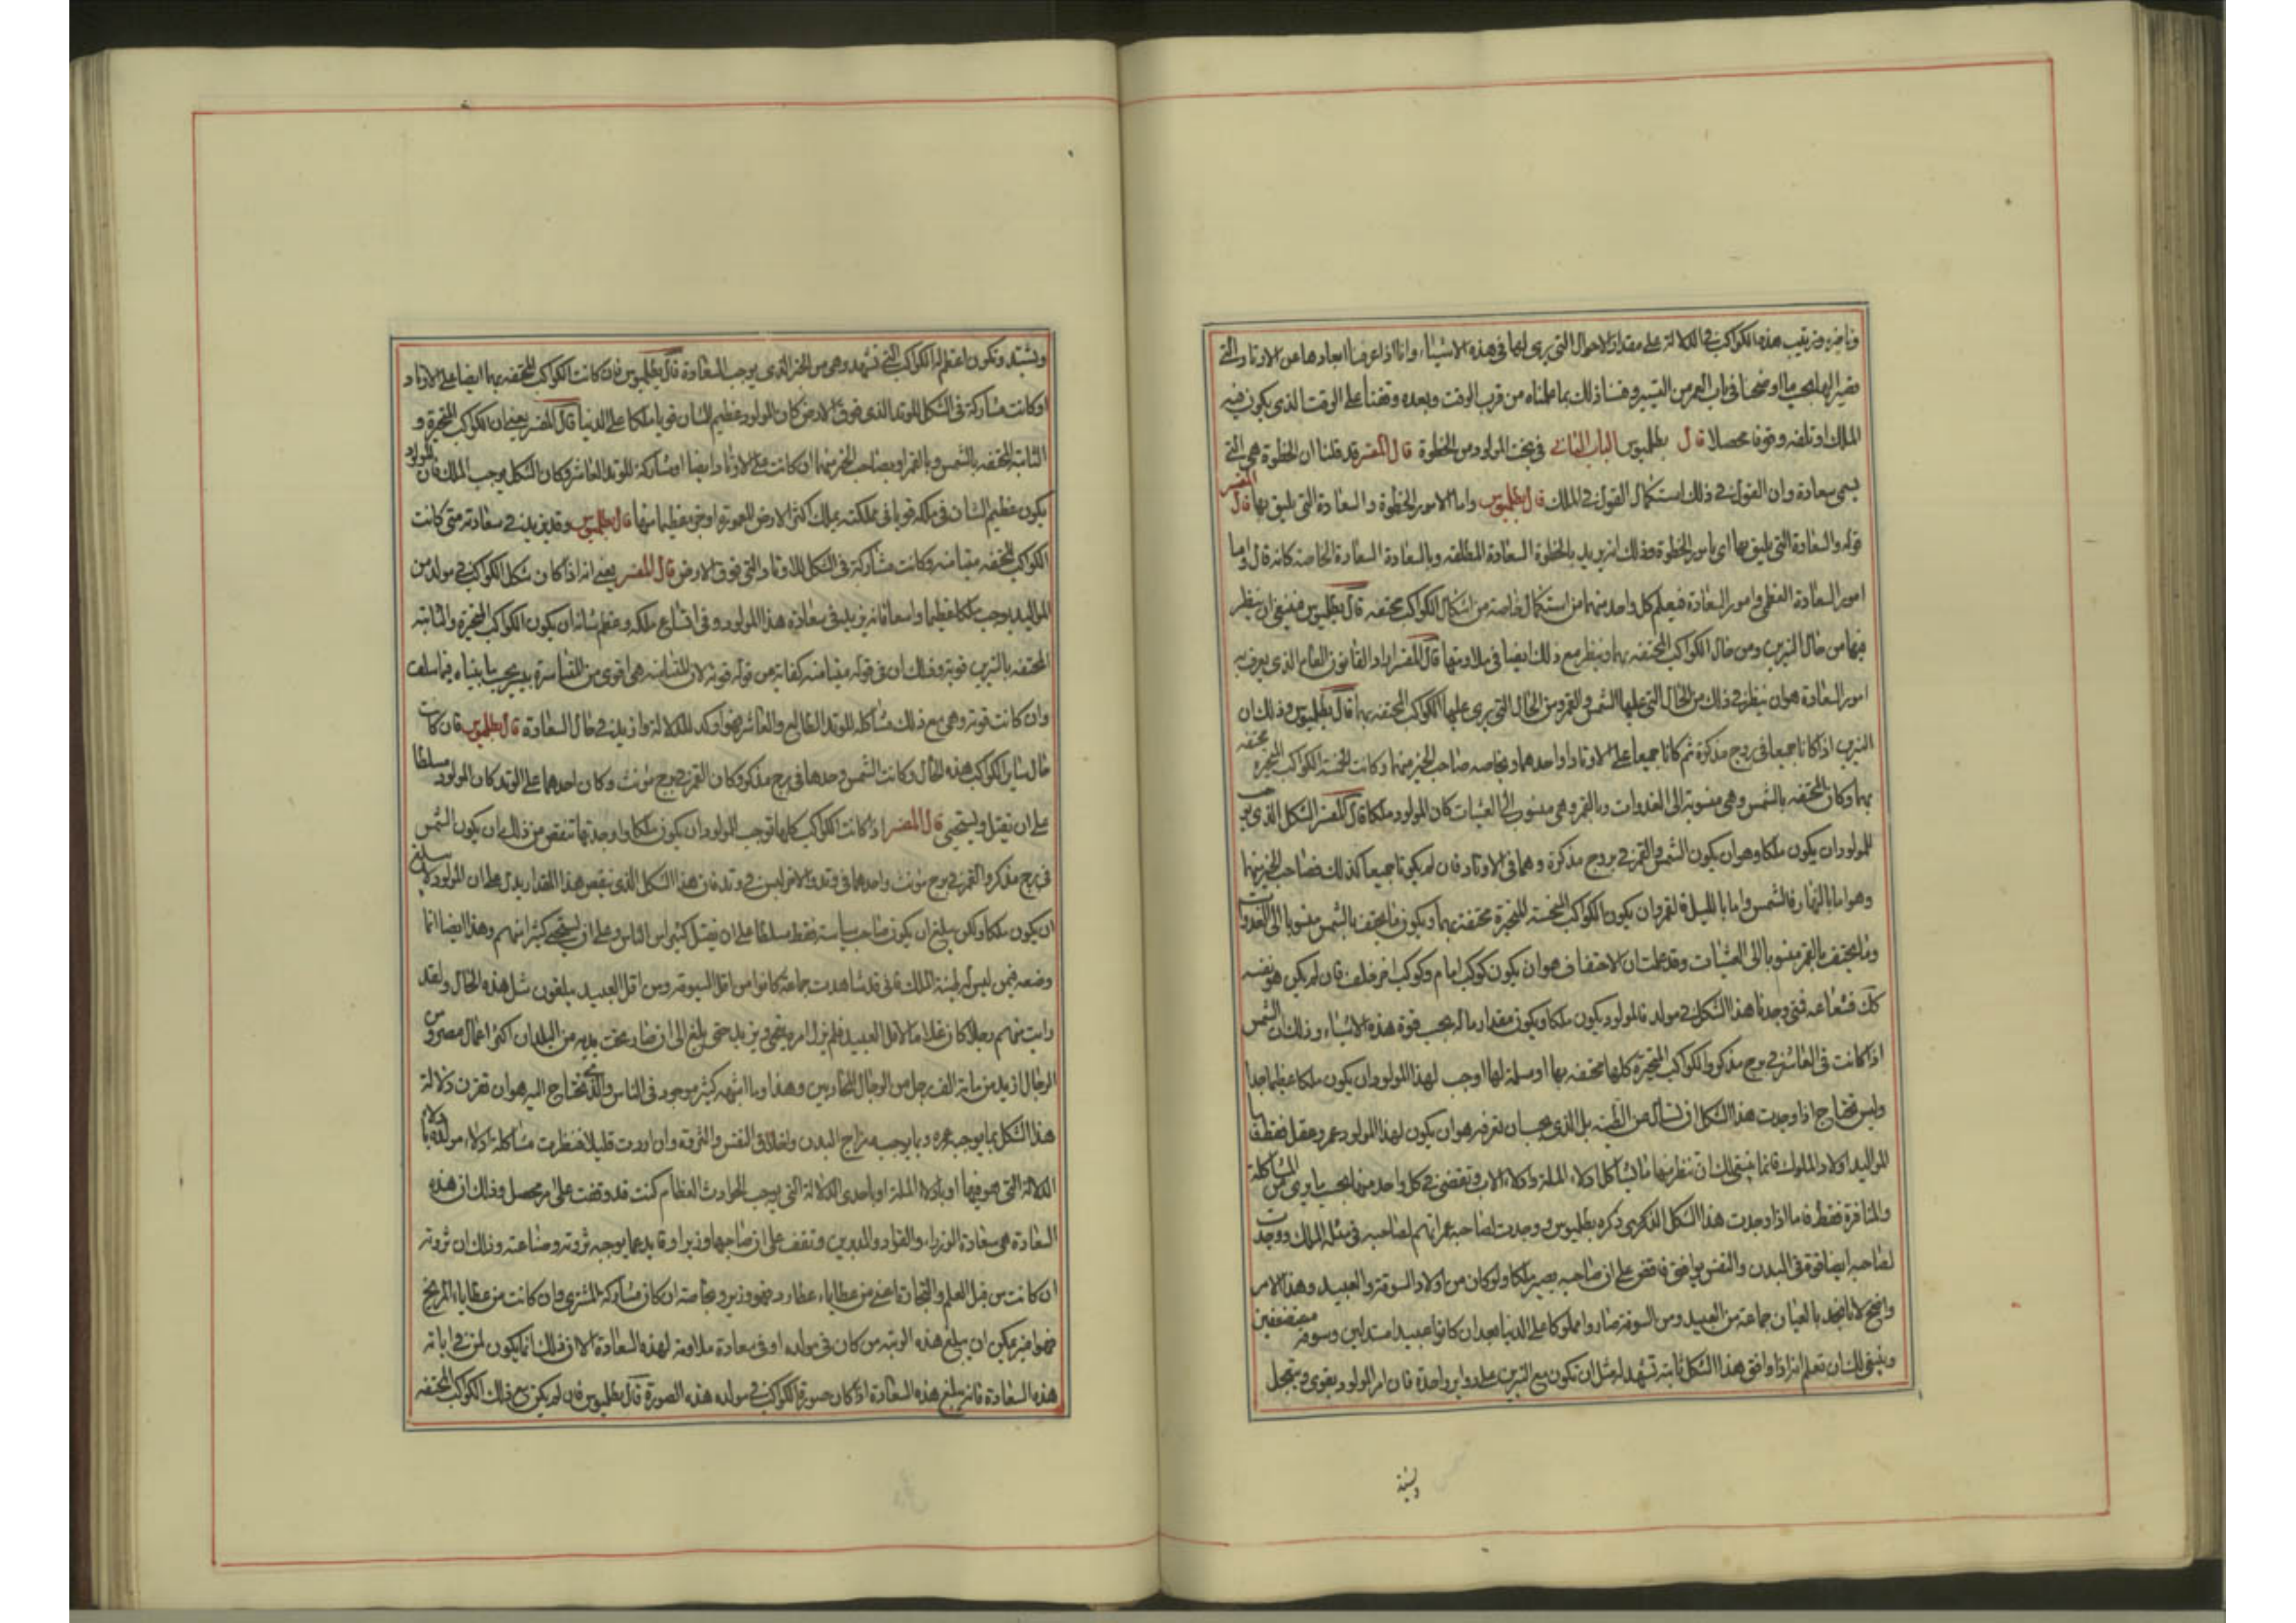 وتاخيره وترتيب هذه الكواكب في الدلالة على مقدار الاحوال التي يرى لها في هذه الاشياء وانا اذا عرفنا ابعادها عن الاوتاد التي
بحسب ما اوضحنا في باب العمر من التسيير وقسنا ذلك بما علمناه من قرب الوقت وبعده وقفنا على الوقت الذي يكون فيه
الملك او تلفه وقوفا محصلا قال بطلميوس الباب الثاني في بخت المولود من الحظوة قال المفسر قد قلنا ان الحظوة هي التي
يسمى سعادة وان القول في ذلك استكمال القول في الملك قال بطلميوس واما الامور الحظوة والسعادة التي يليق بها قال المفسر
قوله والسعادة التي يليق بها اي بامور الحظوة وذلك انه يريد بالحظوة السعادة المطلقه وبالسعادة السعادة الخاصة كانه قال واما
امور السعادة العظمى وامور السعادة فيعلم كل واحد منهما من استكمال خاصة من اشكال الكواكب محتفه قال بطلميوس فينبغي ان ينظر
فيها من حال النيرين ومن حال الكواكب المحتفه بهما وينظر مع ذلك ايضا في ملاومتها قال المفسر اراد القانون العام الذي يعرف به
امور السعادة هو ان ينظر في ذلك من الحال التي عليها الشمس والقمر ومن الحال التي يرى عليها الكواكب المحتفه بهما قال بطلميوس وذلك ان
النيرين اذا كانا جميعا في بروج مذكرة ثم كانا جميعا على الاوتاد او احدهما وبخاصه صاحب الحيز منهما وكانت الخمسة الكواكب المتحيره محتفه
بهما وكان المحتفه بالشمس وهي منسوبة الى الغدوات وبالقمر وهي منسوبة الى العشيات كان المولود ملكا قال المفسر الشكل الذي يوجب
للمولود ان يكون ملكا وهو ان يكون الشمس والقمر في بروج مذكرة وهما في الاوتاد فان لم يكونا جميعا كذلك فصاحب الحيز منهما
وهو اما بالنهار فالشمس واما بالليل فالقمر وان يكون الكواكب الخمسة المتحيرة محتفة بهما ويكون ما يحتف بالشمس منسوبا الى الغدوات
وما يحتف بالقمر منسوبا الى العشيات وقد علمت ان الاحتفاف هو ان يكون كوكب امام وكوكب اخر خلف فان لم يكن هو نفسه
كذلك فشعاعه فمتى وجدنا هذا الشكل في مولد فالمولود يكون ملكا ويكون مقدار ماله بحسب قوة هذه الاشياء وذلك ان الشمس
اذا كانت في العاشر في برج مذكر والكواكب المتحيرة كلها محتفه بها او مسلمة لها اوجب لهذا المولود ان يكون ملكا عظيما جدا
وليس تحتاج اذا وجدت هذا الشكل ان تسأل عن الطينه بل الذي يجب ان تعرفه هو ان يكون لهذا المولود عمر وعقل فقط فاما
المواليد اولاد الملوك فانما ينبغي لك ان تنظر منها ما يشاكل ادلاء الملة وادلاء الاب وتقضي في كل واحد منهما بحسب ما يرى من المشاكلة
والمنافرة فقط فاما اذا وجدت هذا الشكل الذي ذكره بطلميوس ووجدت لصاحبه عمرا يتم لصاحبه في مثله الملك ووجدت
لصاحبه ايضا قوة في البدن والنفس يوافق فاقض على ان صاحبه يصير ملكا ولو كان من اولاد السوقة والعبيد وهذا الامر
واضح لانا نجد بالعيان جماعة من العبيد ومن السوقة صاروا ملوكا على الدنيا بعد ان كانوا عبيدا مبتذلين وسوقه مستضعفين
وينبغي لك ان تعلم انه اذا وافق هذا الشكل ثابتة تشهد له مثل ان تكون مع النيرين على دواير واحدة فان امر المولود يقوى ويتبجل
ويشتد
ويشتد وتكون اعظم له الكواكب التي تشهد وهي من الحيز الذي يوجب السعادة قال بطلميوس فان كانت الكواكب المحتفه بهما ايضا على الاوتاد
او كانت مشاركة في الشكل للوتد الذي فوق الارض كان المولود عظيم الشان قويا ملكا على الدنيا قال المفسر يعني ان الكواكب المتحيرة و
الثابتة المحتفه بالشمس وبالقمر او بصاحب الحيز منهما ان كانت على الاوتاد ايضا او مشاركة للوتد العاشر وكان الشكل يوجب الملك فان المولود
يكون عظيم الشان في ملكه قويا في مملكته يملك اكثر الارض المعمورة او جزءا عظيما منها قال بطلميوس وقد يزيد في سعادته متى كانت
الكواكب المحتفه ميامنه وكانت مشاركة في الشكل للاوتاد التي فوق الارض قال المفسر يعني انه اذا كان شكل الكواكب في مولد من
المواليد يوجب ملكا عظيما واسعا فانه يزيد في سعادة هذا المولود وفي اتساع ملكه وعظم شانه ان يكون الكواكب المتحيرة والثابته
المحتفه بالنيرين قوية وذلك ان في قوله ميامنه كفاية من قوله قويه لان الميامنه هي اقوى من المياسرة بحسب ما بيناه فيما سلف
وان كانت قوية وهي مع ذلك مشاكله للوتد الطالع والعاشر فهو اوكد للدلالة وازيد في حال السعادة قال بطلميوس فان كانت
حال ساير الكواكب هذه الحال وكانت الشمس وحدها في برج مذكر وكان القمر في برج مونث وكان احدهما على الوتد كان المولود مسلطا
على ان يقتل ويستحيي قال المفسر اذا كانت الكواكب كلها توجب للمولود ان يكون ملكا واوجدتها تنقص من ذلك ان يكون الشمس
في برج مذكر والقمر في برج مونث واحدهما في وتد والاخر ليس في وتد فان هذا الشكل الذي نقص هذا المقدار يدل على ان المولود لا يبلغ
ان يكون ملكا ولكن يبلغ ان يكون صاحب سياسة فقط مسلطا على ان يقتل كثيرا من الناس وعلى ان يستحيي كثيرا منهم وهذا ايضا انما
وضعه فيمن ليس له طينة الملك فاني قد شاهدت جماعة كانوا من اقل السوقة ومن اقل العبيد يبلغون مثل هذه الحال ولقد
رايت منهم رجلا كان غلاما لاقل العبيد فلم يزل امره يقوى ويزيد حتى بلغ الى ان صار تحت يديه من البلدان اكثر اعمال مصر ومن
الرجال ازيد من ماية الف رجل من الرجال المحاربين وهذا وما اشبهه كثير موجود في الناس والذي تحتاج اليه هو ان تعرف دلالة
هذا الشكل بما يوجب عمره وبما يوجبه مزاج البدن واخلاق النفس والثروة وان اردت قليلا فنظرت مشاكلة ادلاء مولده بادلاء
الدلالة التي هو فيها او بادلاء الملة او باحدى الدلالة التي يوجب الحوادث العظام كنت قد وقفت على امر محصل وذلك ان هذه
السعادة هي سعادة الوزراء والقواد والمدبرين وتقف على ان صاحبها وزير او قايد بما يوجبه ثروته وصناعته وذلك ان ثروته
ان كانت من قبل العلم والتجارة اعني من عطايا عطارد فهو وزير وبخاصه ان كان مشاركه المشتري وان كانت من عطايا المريخ
فهو امير يمكن ان يبلغ هذه الرتبه من كان في مولده او في سعادة ملاومة لهذه السعادة الا ان ذلك انما يكون لمن في اباته
هذه السعادة فانه يبلغ هذه السعادة اذا كان صورة الكواكب في مولده هذه الصورة قال بطلميوس فان لم يكن مع ذلك الكواكب المحتفه